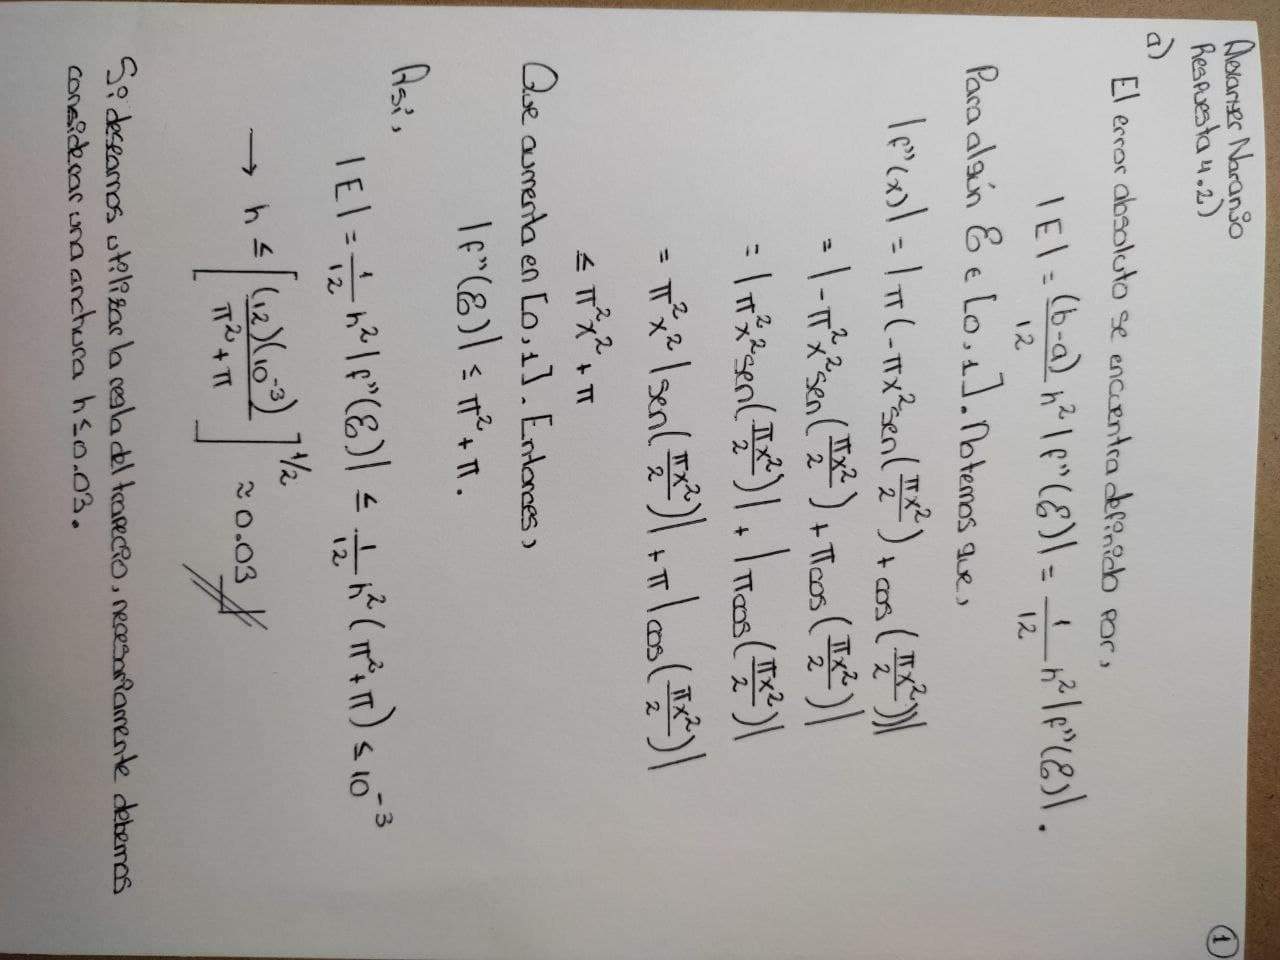 Alexander Naranjo
Respuesta 4.2)
①
a)
El error absoluto se encuentra definido por,
|E| = (b-a)/12 h² |f''(ξ)| = 1/12 h² |f''(ξ)|.
Para algún ξ ∈ [0,1]. Notemos que,
|f''(x)| = |π(-πx² sen(πx²/2) + cos(πx²/2))|
= |-π²x² sen(πx²/2) + π cos(πx²/2)|
= |π²x² sen(πx²/2)| + |π cos(πx²/2)|
= π²x² |sen(πx²/2)| + π |cos(πx²/2)|
≤ π²x² + π
Que aumenta en [0,1]. Entonces,
|f''(ξ)| ≤ π² + π.
Así,
|E| = 1/12 h² |f''(ξ)| ≤ 1/12 h² (π² + π) ≤ 10⁻³
→ h ≤ [(12)(10⁻³)/(π² + π)]^1/2 ≈ 0.03
Si deseamos utilizar la regla del trapecio, necesariamente debemos
considerar una anchura h ≤ 0.03.